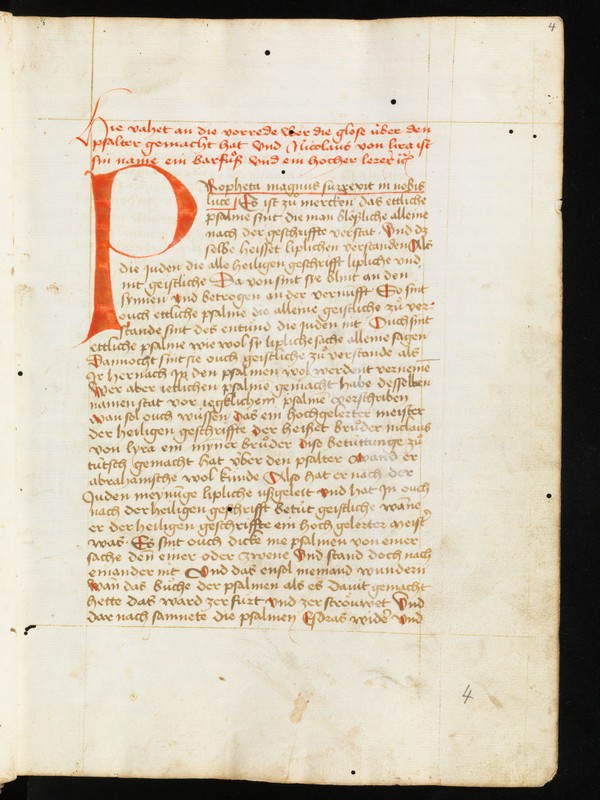 4
Hie vahet an die vorrede über die glose über den
psalter gemacht hat Vnd Nicolaus von lira ist
sin name ein barfůs Vnd ein hocher lerer
PRopheta magnus surrexit in nobis
luce Es ist zů mercken das ettliche
psalme sint die man blösliche alleine
nach der geschriffte verstat Vnd dz
selbe heisset liplichen verstanden Als
die Juden die alle heiligen geschrifft lipliche vnd
nit geistliche Da von sint sye blint an den
synnen vnd betrogen an der vernufft So sint
ouch ettliche psalme die alleine geistliche zů ver-
stande sint des entůnd die juden nit Ouch sint
ettliche psalme wie wol sy lipliche sache alleine sagen
Dannocht sint sie ouch geistliche zů verstande als
Jr hernach Jn den psalmen wol werdent verneme
Wer aber ietlichen psalme gemacht habe desselben
namen stat vor iegklichem psalme verschriben
man sol ouch wüssen Das ein hochgelerter meister
der heiligen geschriffte der heisset brůder niclaus
von lyra ein mynner brůder dise betüttunge zů
tütsch gemacht hat über den psalter wand er
abrahamsche wol kunde Also hat er nach der
Juden meynüge lipliche usgeleit vnd hat Jn ouch
nach der heiligen geschrifft betüt geistliche wane
er der heiligen geschriffte ein hoch gelerter meist
was Es sint ouch dicke me psalmen von einer
sache den einer oder zwene Vnd stand doch nach
einander nit Vnd das ensol niemand wundern
wan das bůche der psalmen als es dauit gemacht
hette das ward zerfůrt vnd zerströuwet Vnd
dar nach samnete die psalmen Esdras wider vnd
4